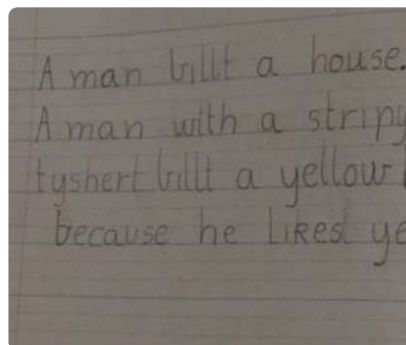 A man billt a house.
A man with a stripy
tyshert billt a yellow
because he likes